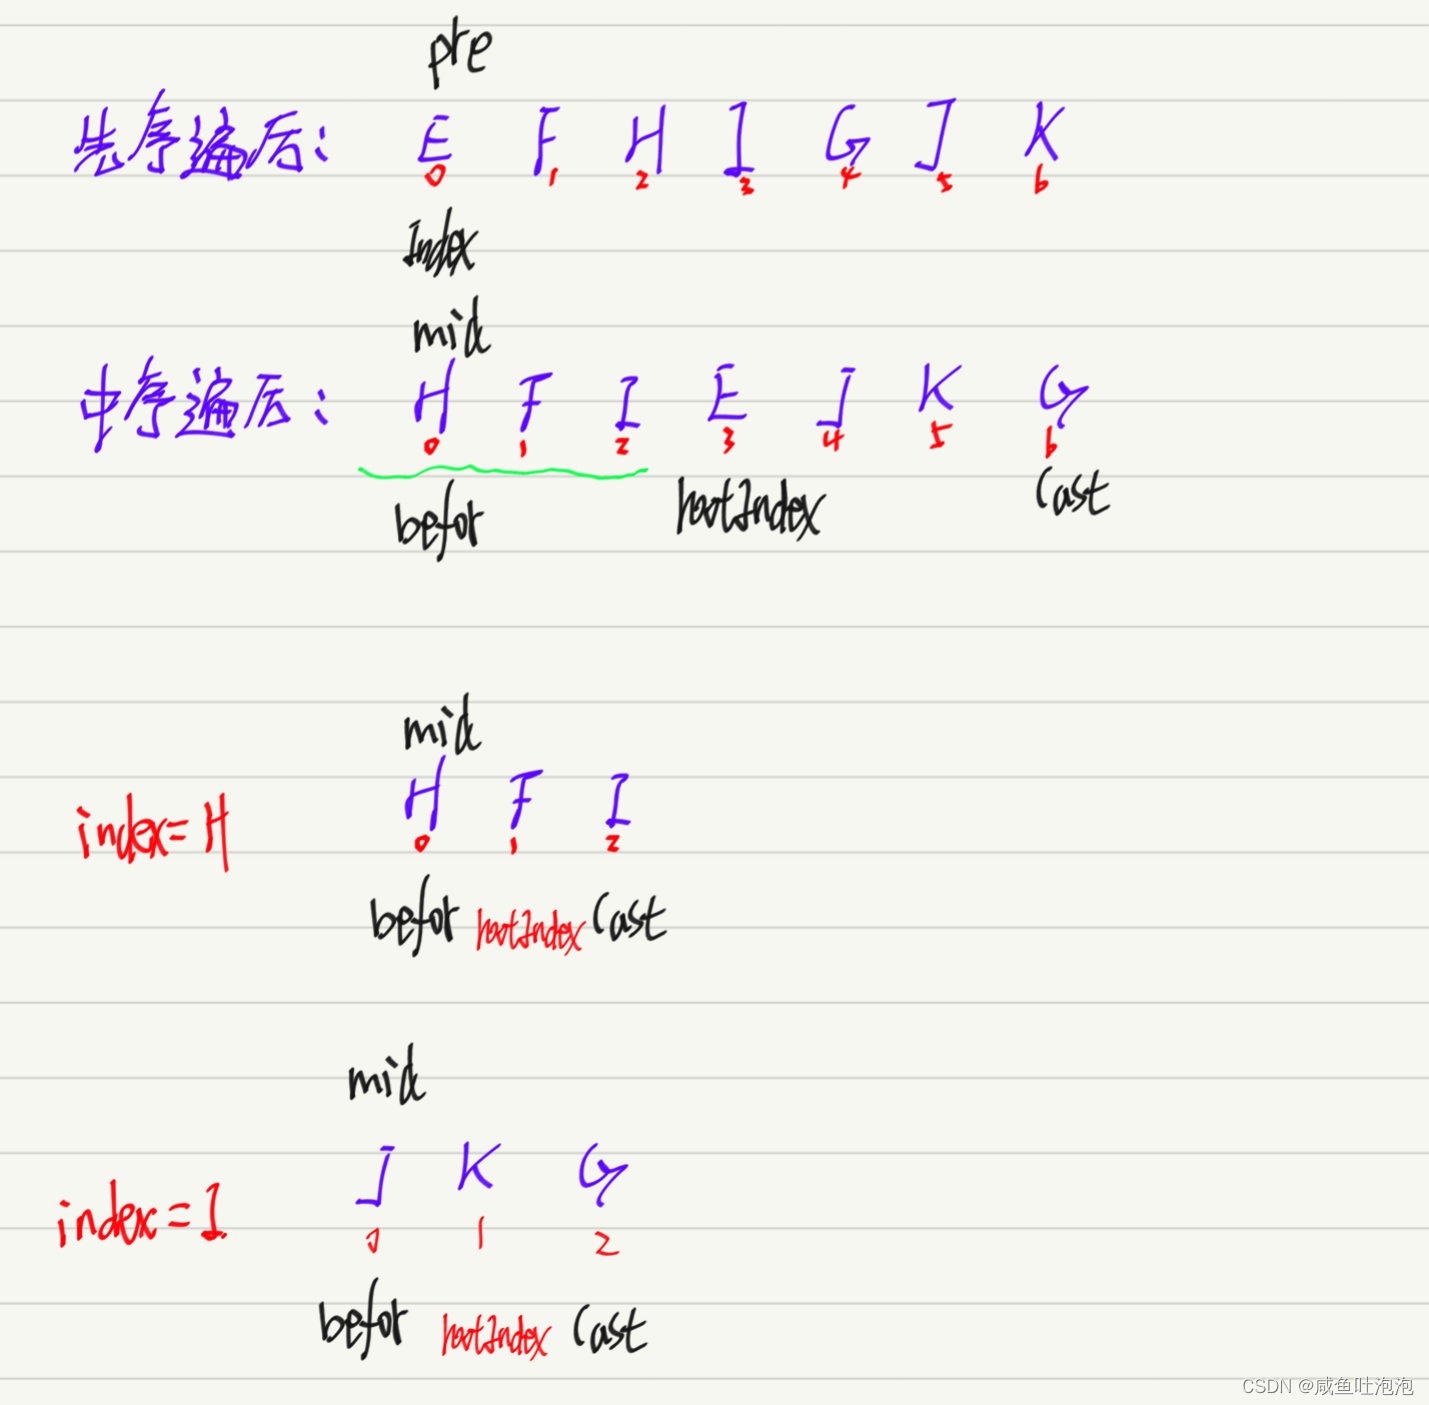 pre
先序遍历: E F H I G J K
0 1 2 3 4 5 6
Index
mid
中序遍历: H F I E J K G
0 1 2 3 4 5 6
befor rootIndex last
mid
index=H H F I
0 1 2
befor rootIndex last
mid
index=I J K G
0 1 2
befor rootIndex last
CSDN @咸鱼吐泡泡